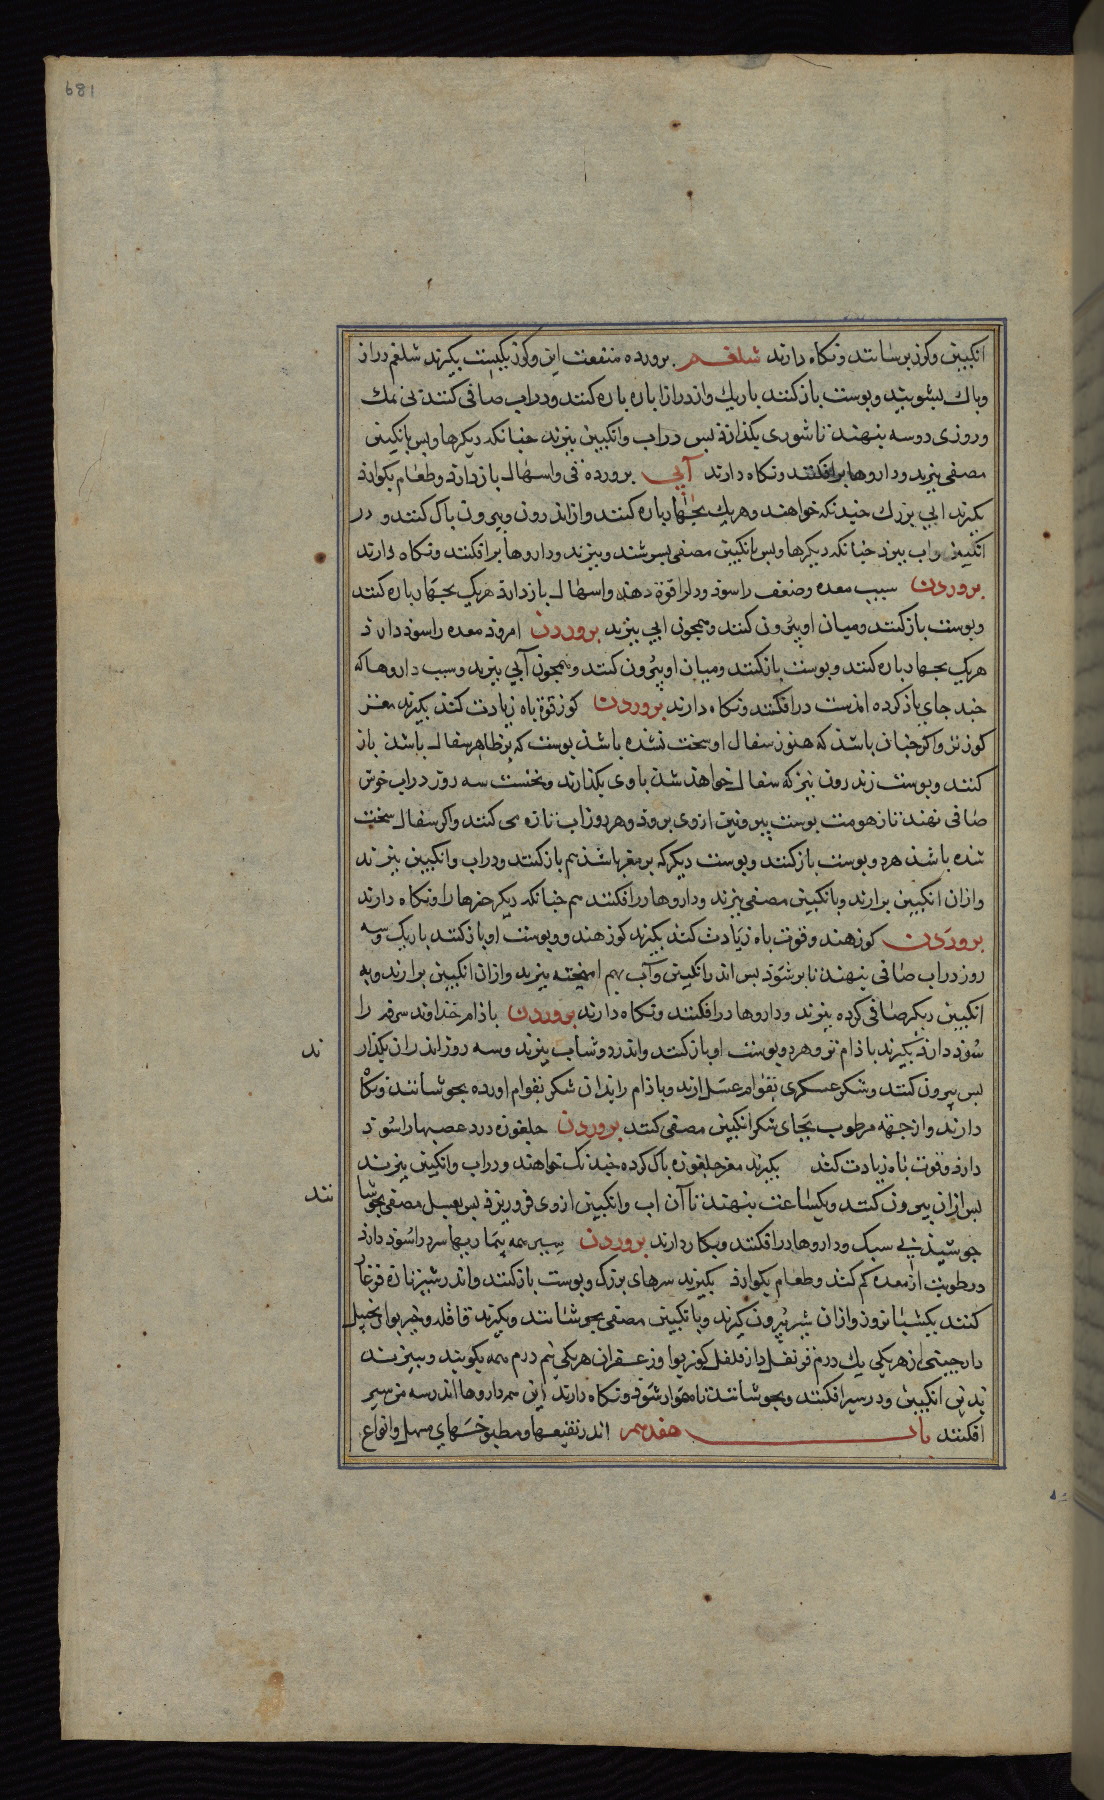 681
انکبین وکوز برسانند ونکاه دارند شلغم برورده منفعت این وکوز یکیست بکیرند شلغم دراز
وباک بشویند وبوست باز کنند باریك وانرا درازا باره باره کنند ودر اب صافی کنند نی نمك
وروزی دوسه بنهند تا شوری بکذارد بس در اب وانکبین ببزند جنانکه دیکرها وبس بانکبین
مصفی ببزند وداروها برافکنند ونکاه دارند آبی برورده قی واسهال باز دارد وطعام بکوارد
بکیرند ابی بزرك جندنکه خواهند وهریك بجهار باره کنند واز اندرون وبیرون باک کنند ودر
انکبین واب ببزند جنانکه دیکرها وبس بانکبین مصفی بسرشند وببزند وداروها برافکنند ونکاه دارند
بروردن سیب معده وضعف را سوذ ودلرا قوة دهذ واسهال باز دارد هریک بجهار باره کنند
وبوست باز کنند ومیان او بیرون کنند وهمجون ابی ببزند بروردن امروذ معده را سوذ دارذ
هریک بجهار باره کنند وبوست باز کنند ومیان او بیرون کنند وهمجون آبی ببزند وسبب داروها که
جند جای یاذ کرده اندست درافکنند ونکاه دارند بروردن کوز قوة باه زیادت کند بکیرند مغز
کوز تر واکر جنان باشذ که هنوز سفال او سخت نشده باشذ بوست که بر ظاهر سفال باشذ باز
کنند وبوست زند رون نیز که سفال خواهذ شذن باوی بکذارند ونخست سه روز در اب خوش
صافی نهند تا زهومت بوست بیرونین ازوی بروذ وهر روز اب تازه می کنند واکر سفال سخت
شده باشذ هر دو بوست باز کنند وبوست دیکر که بر مغز باشذ هم باز کنند ودر اب وانکبین ببزند
وازان انکبین برارند وبانکبین مصفی ببزند وداروها درافکنند هم جنانکه دیکر جیزها را ونکاه دارند
بروردن کوز هند وقوت باه زیادت کند بکیرند کوز هند وبوست او باز کنند باریک وسه
روز در اب صافی بنهند تا برشوذ بس اندر انکبین وآب بهم امیخته ببزند وازان انکبین برارند وبه
انکبین دیکر صافی کرده ببزند وداروها درافکنند ونکاه دارند بروردن باذام خذاوند سرفه را
سوذ دارذ بکیرند باذام تر وهر دو بوست او باز کنند واندر دوشاب ببزند وسه روز اندران بکذار
ند
بس بیرون کنند وشکر عسکری بقوام عسل ارند وباذام را بذان شکر بقوام اورده بجوشانند ونکاه
دارند واز جهة مرطوب بجای شکر انکبین مصفی کنند بروردن جلغوزه درد عصبها را سوذ
دارذ وقوت باه زیادت کند بکیرند مغز جلغوزه باک کرده جندنک خواهند ودر اب وانکبین ببزند
بس ازان بیرون کنند ویکساعت بنهند تا آن اب وانکبین ازوی فرو ریزد بس بعسل مصفی بجوشا
نند
جوشیذنی سبک وداروها درافکنند وبکار دارند بروردن سیر همه بیماریها سرد را سوذ دارذ
ورطوبت از معده کم کند وطعام بکوارد بکیرند سرهای بزرک وبوست باز کنند واندر شیر تازه فرغار
کنند یکشبانروز وازان شیر بیرون کیرند وبانکبین مصفی بجوشانند وبکیرند قاقله وخیربوا زنجبیل
دارجینی از هریکی یك درم قرنفل دارفلفل کوزبوا وزعفران هریکی نیم درم همه بکوبند وببیزند
بذین انکبین ودر سیر افکنند وبجوشانند تا هموار شوذ ونکاه دارند این همه داروها اندر سه من سیر
افکنند باب هفدهم اندر نقیعها ومطبوخهای مسهل وانواع